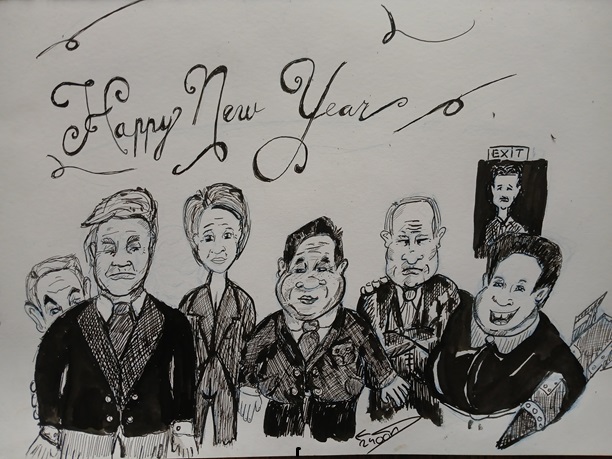 Happy New Year
EXIT